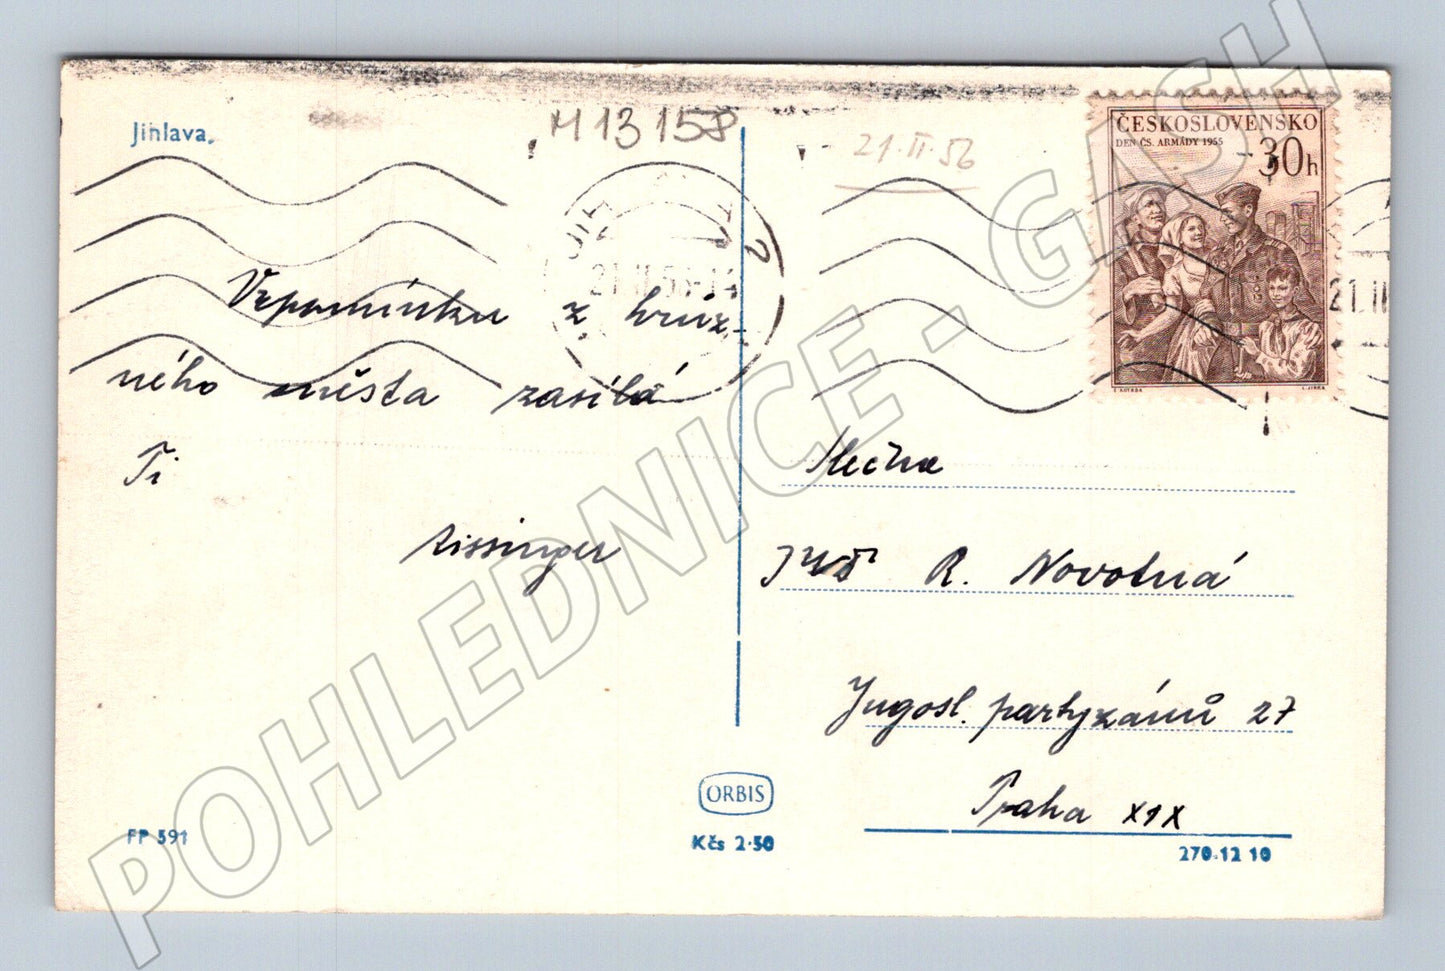 Jihlava.
M 13 158
21.II.56
ČESKOSLOVENSKO
DEN ČS. ARMÁDY 1955
30h
JIHLAVA 2
21.II.56-14
21.II
Vzpomínku z hrůz-
ného města zasílá
Ti
Slečna
R. Novotná
Jugosl. partyzánů 27
Praha XIX
ORBIS
Kčs 2·50
FP 591
270.12 10
POHLEDNICE - GASH